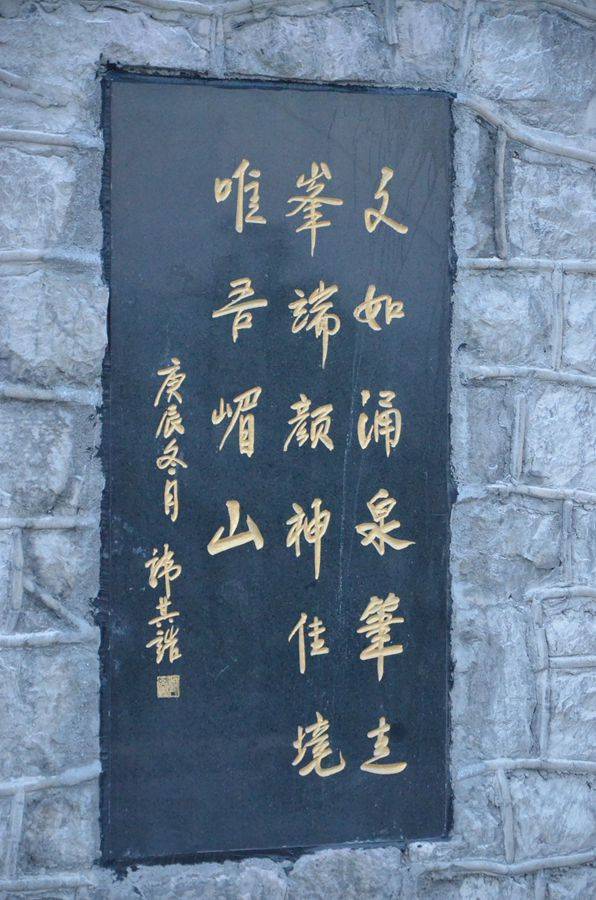 文如涌泉筆走
峯端颜神佳境
唯吾嵋山
庚辰冬月
其諧